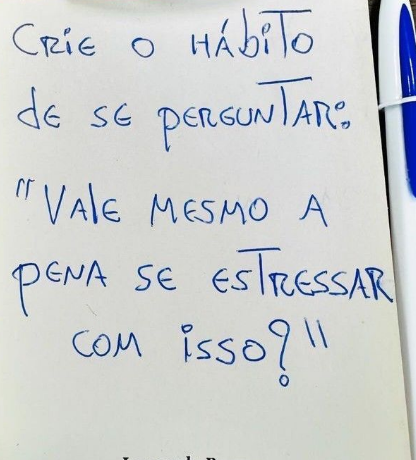 CRIE O HÁBITO
DE SE PERGUNTAR:
"VALE MESMO A
PENA SE ESTRESSAR
COM ISSO?"